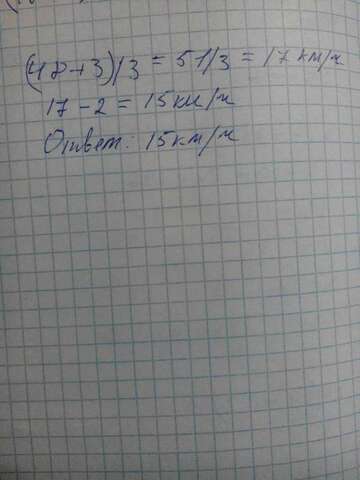 (48+3)/3 = 51/3 = 17 км/ч
17 - 2 = 15 км/ч
Ответ: 15 км/ч